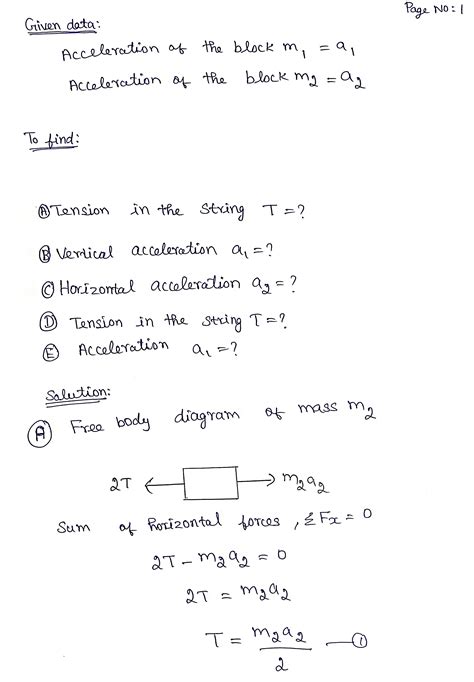 Page No: 1
Given data:
Acceleration of the block m₁ = a₁
Acceleration of the block m₂ = a₂
To find:
Ⓐ Tension in the string T = ?
Ⓑ Vertical acceleration a₁ = ?
Ⓒ Horizontal acceleration a₂ = ?
Ⓓ Tension in the string T = ?
Ⓔ Acceleration a₁ = ?
Solution:
Ⓐ Free body diagram of mass m₂
2T m₂a₂
Sum of horizontal forces, ΣFx = 0
2T - m₂a₂ = 0
2T = m₂a₂
T = m₂a₂/2 — ①